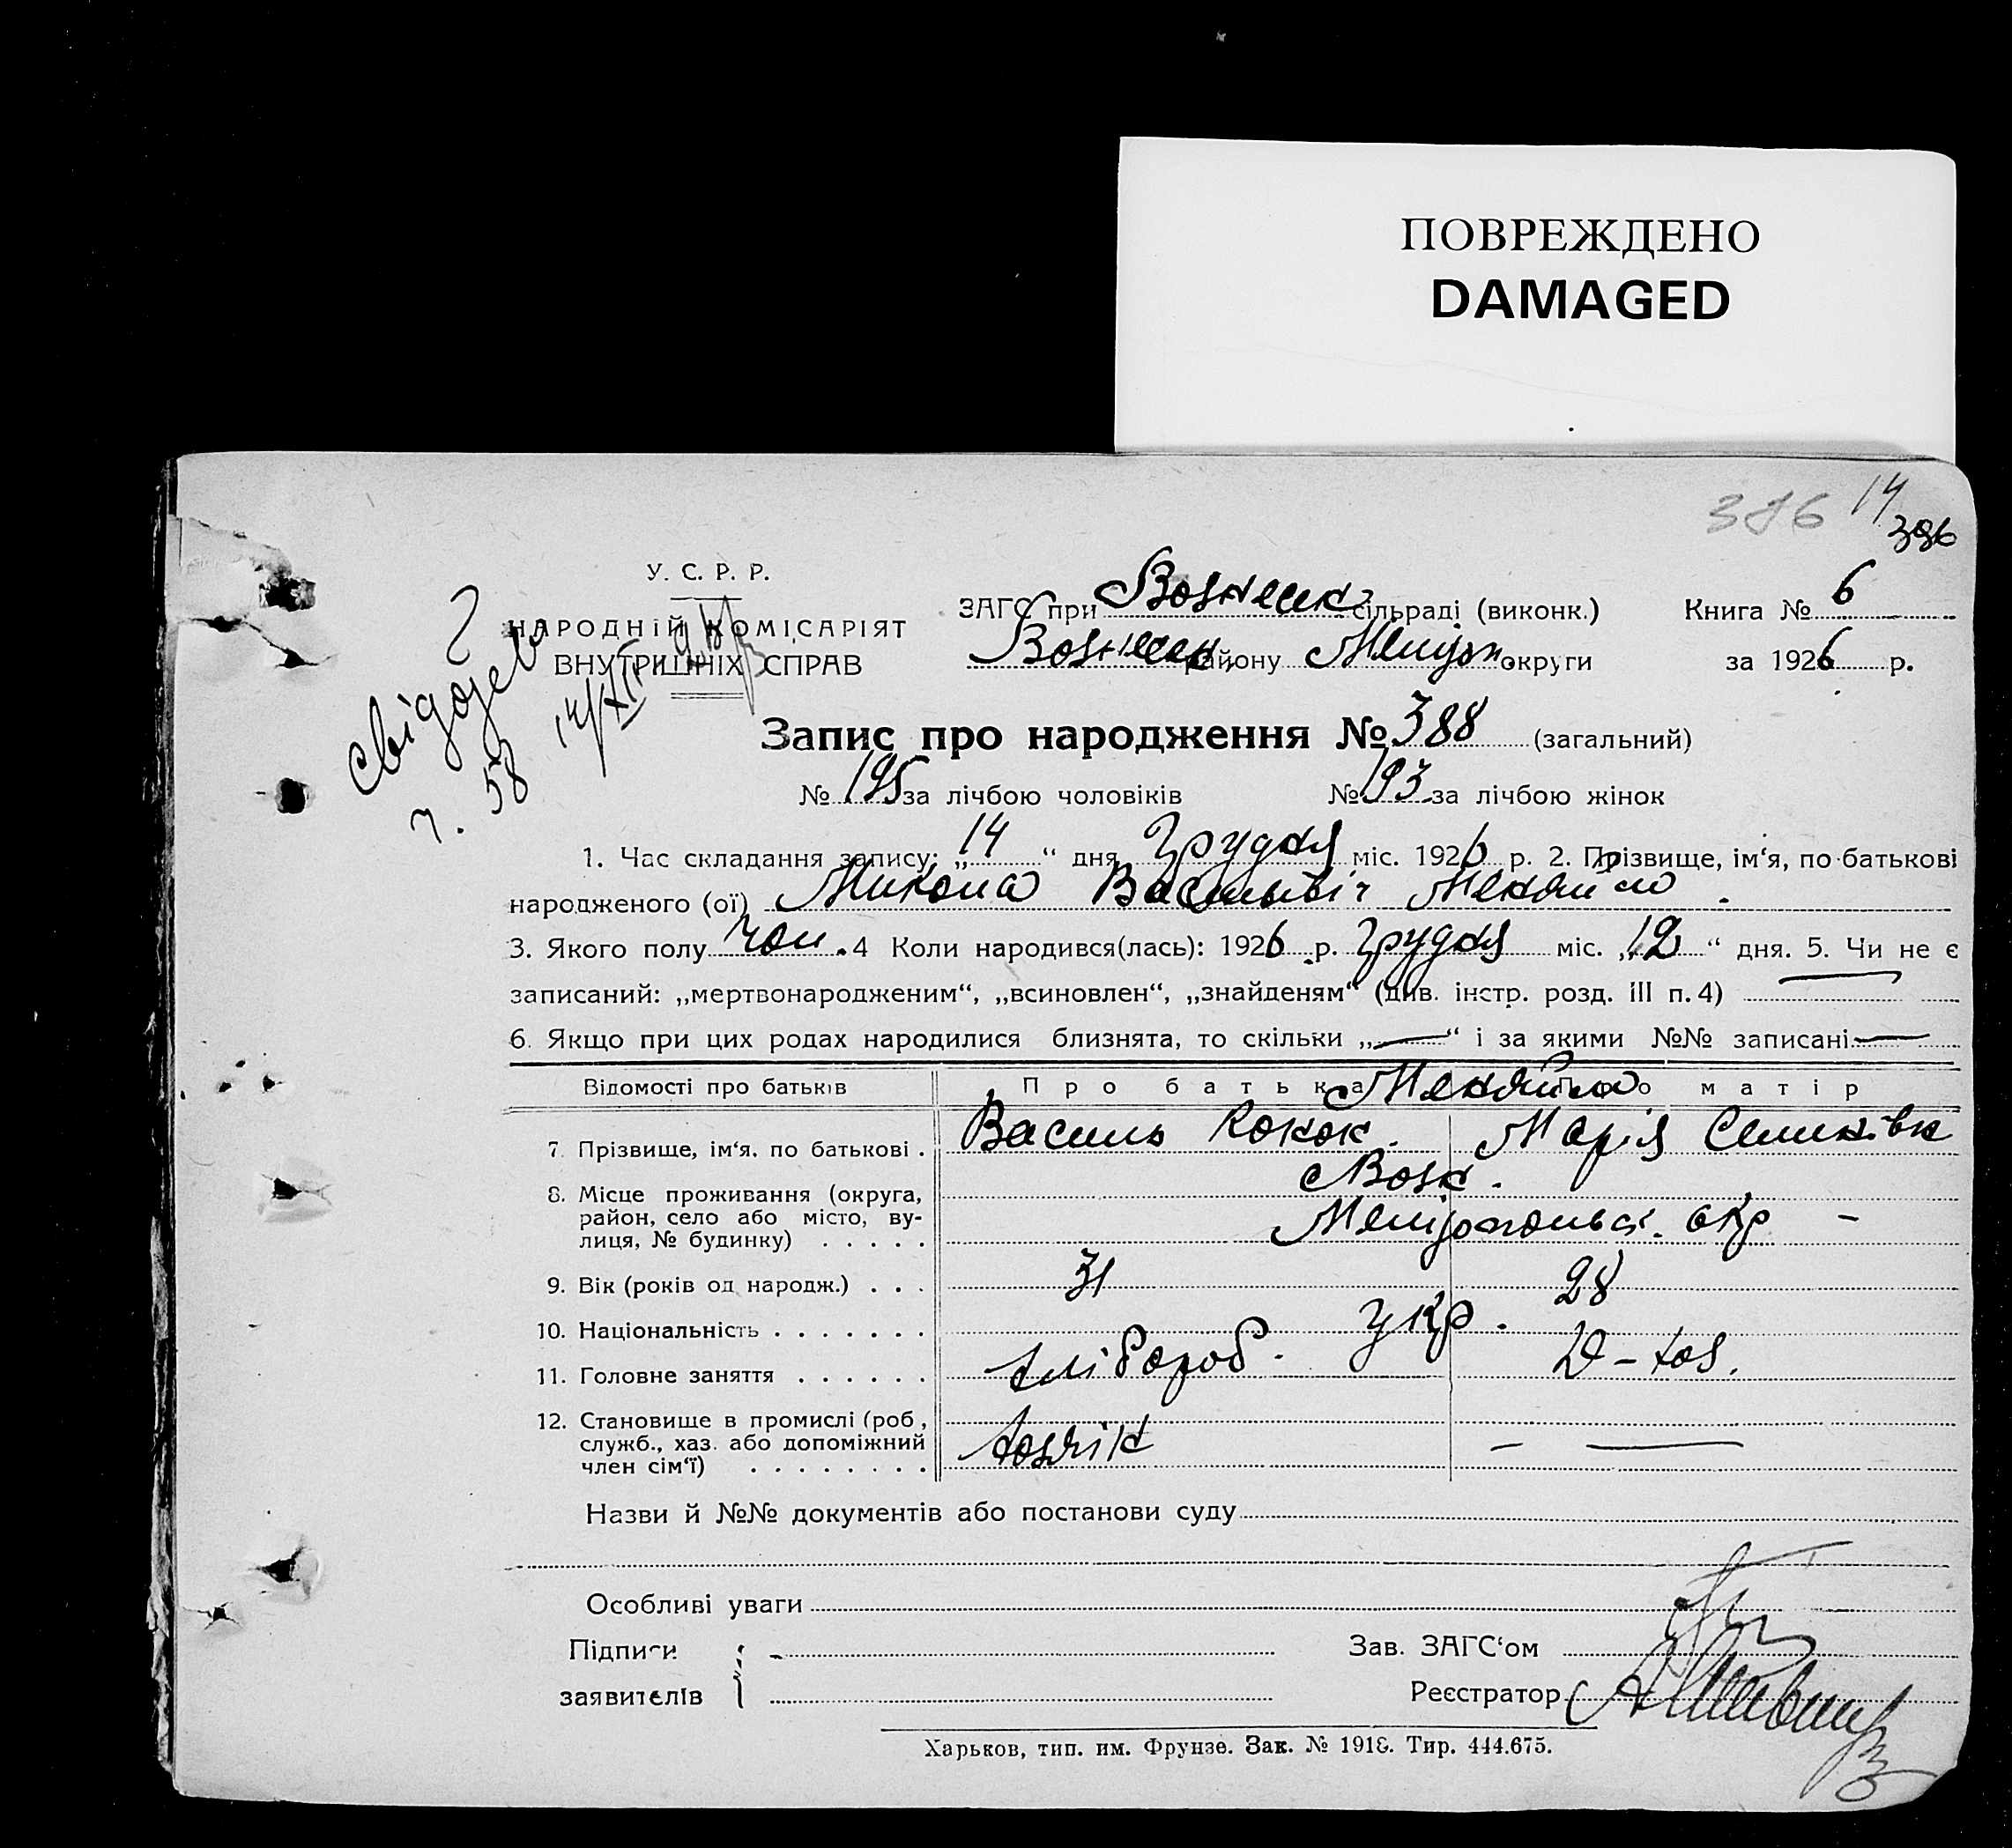 ПОВРЕЖДЕНО
DAMAGED
376 14
396
У. С. Р. Р.
НАРОДНІЙ КОМІСАРІЯТ
ВНУТРИШНІХ СПРАВ
ч. 58
ЗАГС при Вознесен сільраді (виконк.) Книга № 6
Вознесен. району Меліт. округи за 1926 р.
Запис про народження № 388 (загальний)
№ 195 за лічбою чоловіків № 193 за лічбою жінок
1. Час складання запису: „14“ дня Грудня міс. 1926 р. 2. Прізвище, ім‘я, по-батькові
народженого (ої) Микола Васильвіч
3. Якого полу чол. 4 Коли народився(лась): 1926 р. Грудня міс. „12“ дня. 5. Чи не є
записаний: „мертвонародженим“, „всиновлен“, „знайденям“ (див. інстр. розд. III п. 4) —
6. Якщо при цих родах народилися близнята, то скільки „—“ і за якими №№ записані —
Відомості про батьків Про батька Про матір
7. Прізвище, ім‘я, по батькові . Василь Кокон. Марія
8. Місце проживання (округа, Возн.
район, село або місто, ву-
лиця, № будинку) . . . . . Мелітопольск. окр —
9. Вік (років од народж.) . . . 31 28
10. Національність . . . . . . . укр.
11. Головне заняття . . . . . . хлібороб. Д-хоз.
12. Становище в промислі (роб.,
служб., хаз. або допоміжний хозяін — —
член сім‘ї) . . . . . . . .
Назви й №№ документів або постанови суду
Особливі уваги
Підписи
заявителів
Зав. ЗАГС‘ом
Реєстратор
Харьков, тип. им. Фрунзе. Зак. № 1918. Тир. 444.675.